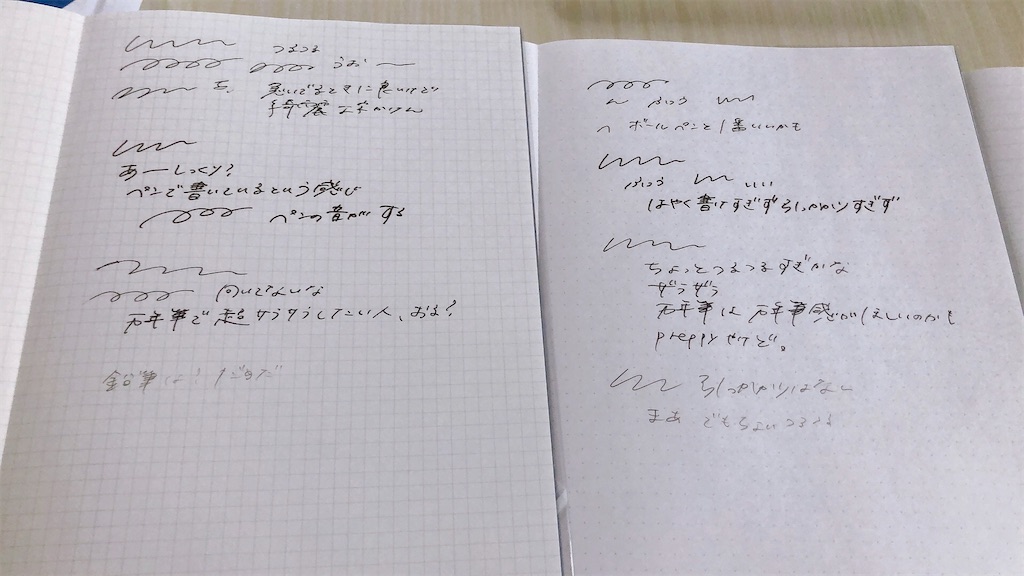 つるつる
うおー
急いでるときに良いけど
綺麗に
あーしっくり?
ペンで書いているという感じ
ペンの音がする
向いてないな
万年筆で超サラサラしたい人、おる?
鉛筆は
ん ふつう
ボールペンと
ふつう いい
はやく書けすぎず引っかかりすぎず
ちょっとつるつるすぎかな
万年筆は万年筆感がほしいのかも
preppyやけど。
引っかかりはない
まあ でもちょい